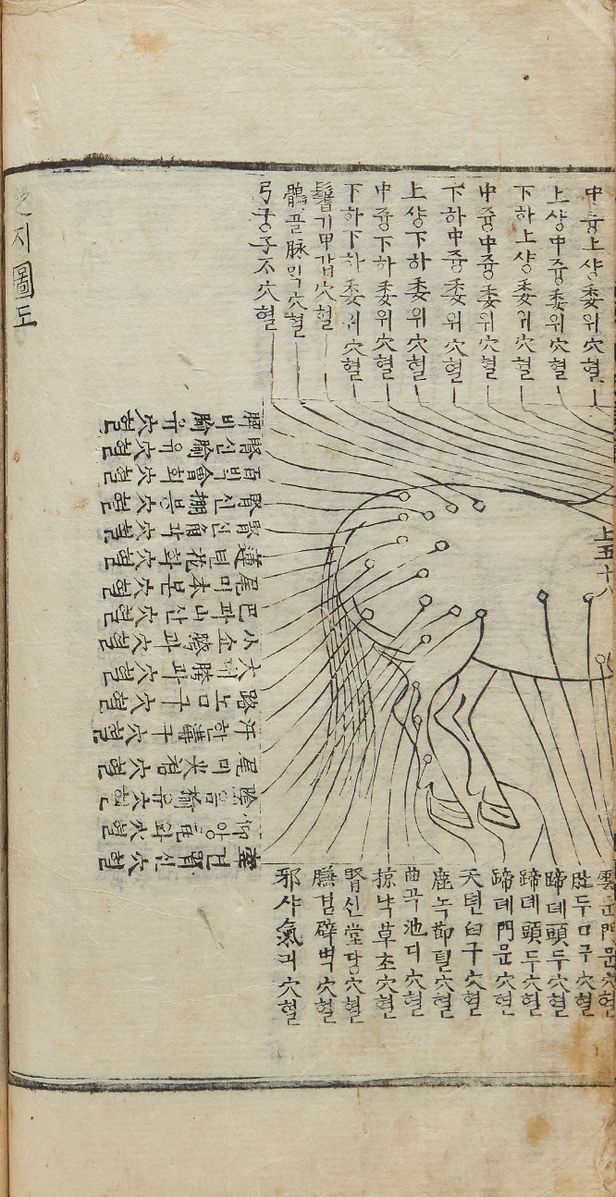 中즁上샹委위穴혈
上샹中즁委위穴혈
下하上샹委위穴혈
中즁中즁委위穴혈
下하中즁委위穴혈
上샹下하委위穴혈
中즁下하委위穴혈
下하下하委위穴혈
鬐기甲갑穴혈
鶻골脉ᄆᆡᆨ穴혈
弓궁子ᄌᆞ穴혈
脾비腧유穴혈
腎신腧유穴혈
百ᄇᆡᆨ會회穴혈
腎신棚붕穴혈
腎신角각穴혈
蓮련花화穴혈
尾미本본穴혈
巴파山산穴혈
小쇼胯과穴혈
大대胯과穴혈
路로口구穴혈
汗한溝구穴혈
尾미穴혈
陰음腧유穴혈
仰앙瓦와穴혈
牽견腎신穴혈
雲운門문穴혈
肚두口구穴혈
蹄뎨頭두穴혈
蹄뎨頭두穴혈
蹄뎨門문穴혈
天텬臼구穴혈
鹿녹節졀穴혈
曲곡池디穴혈
掠낙草초穴혈
腎신堂당穴혈
겸벽穴혈
邪샤氣긔穴혈
上五十八
之지圖도